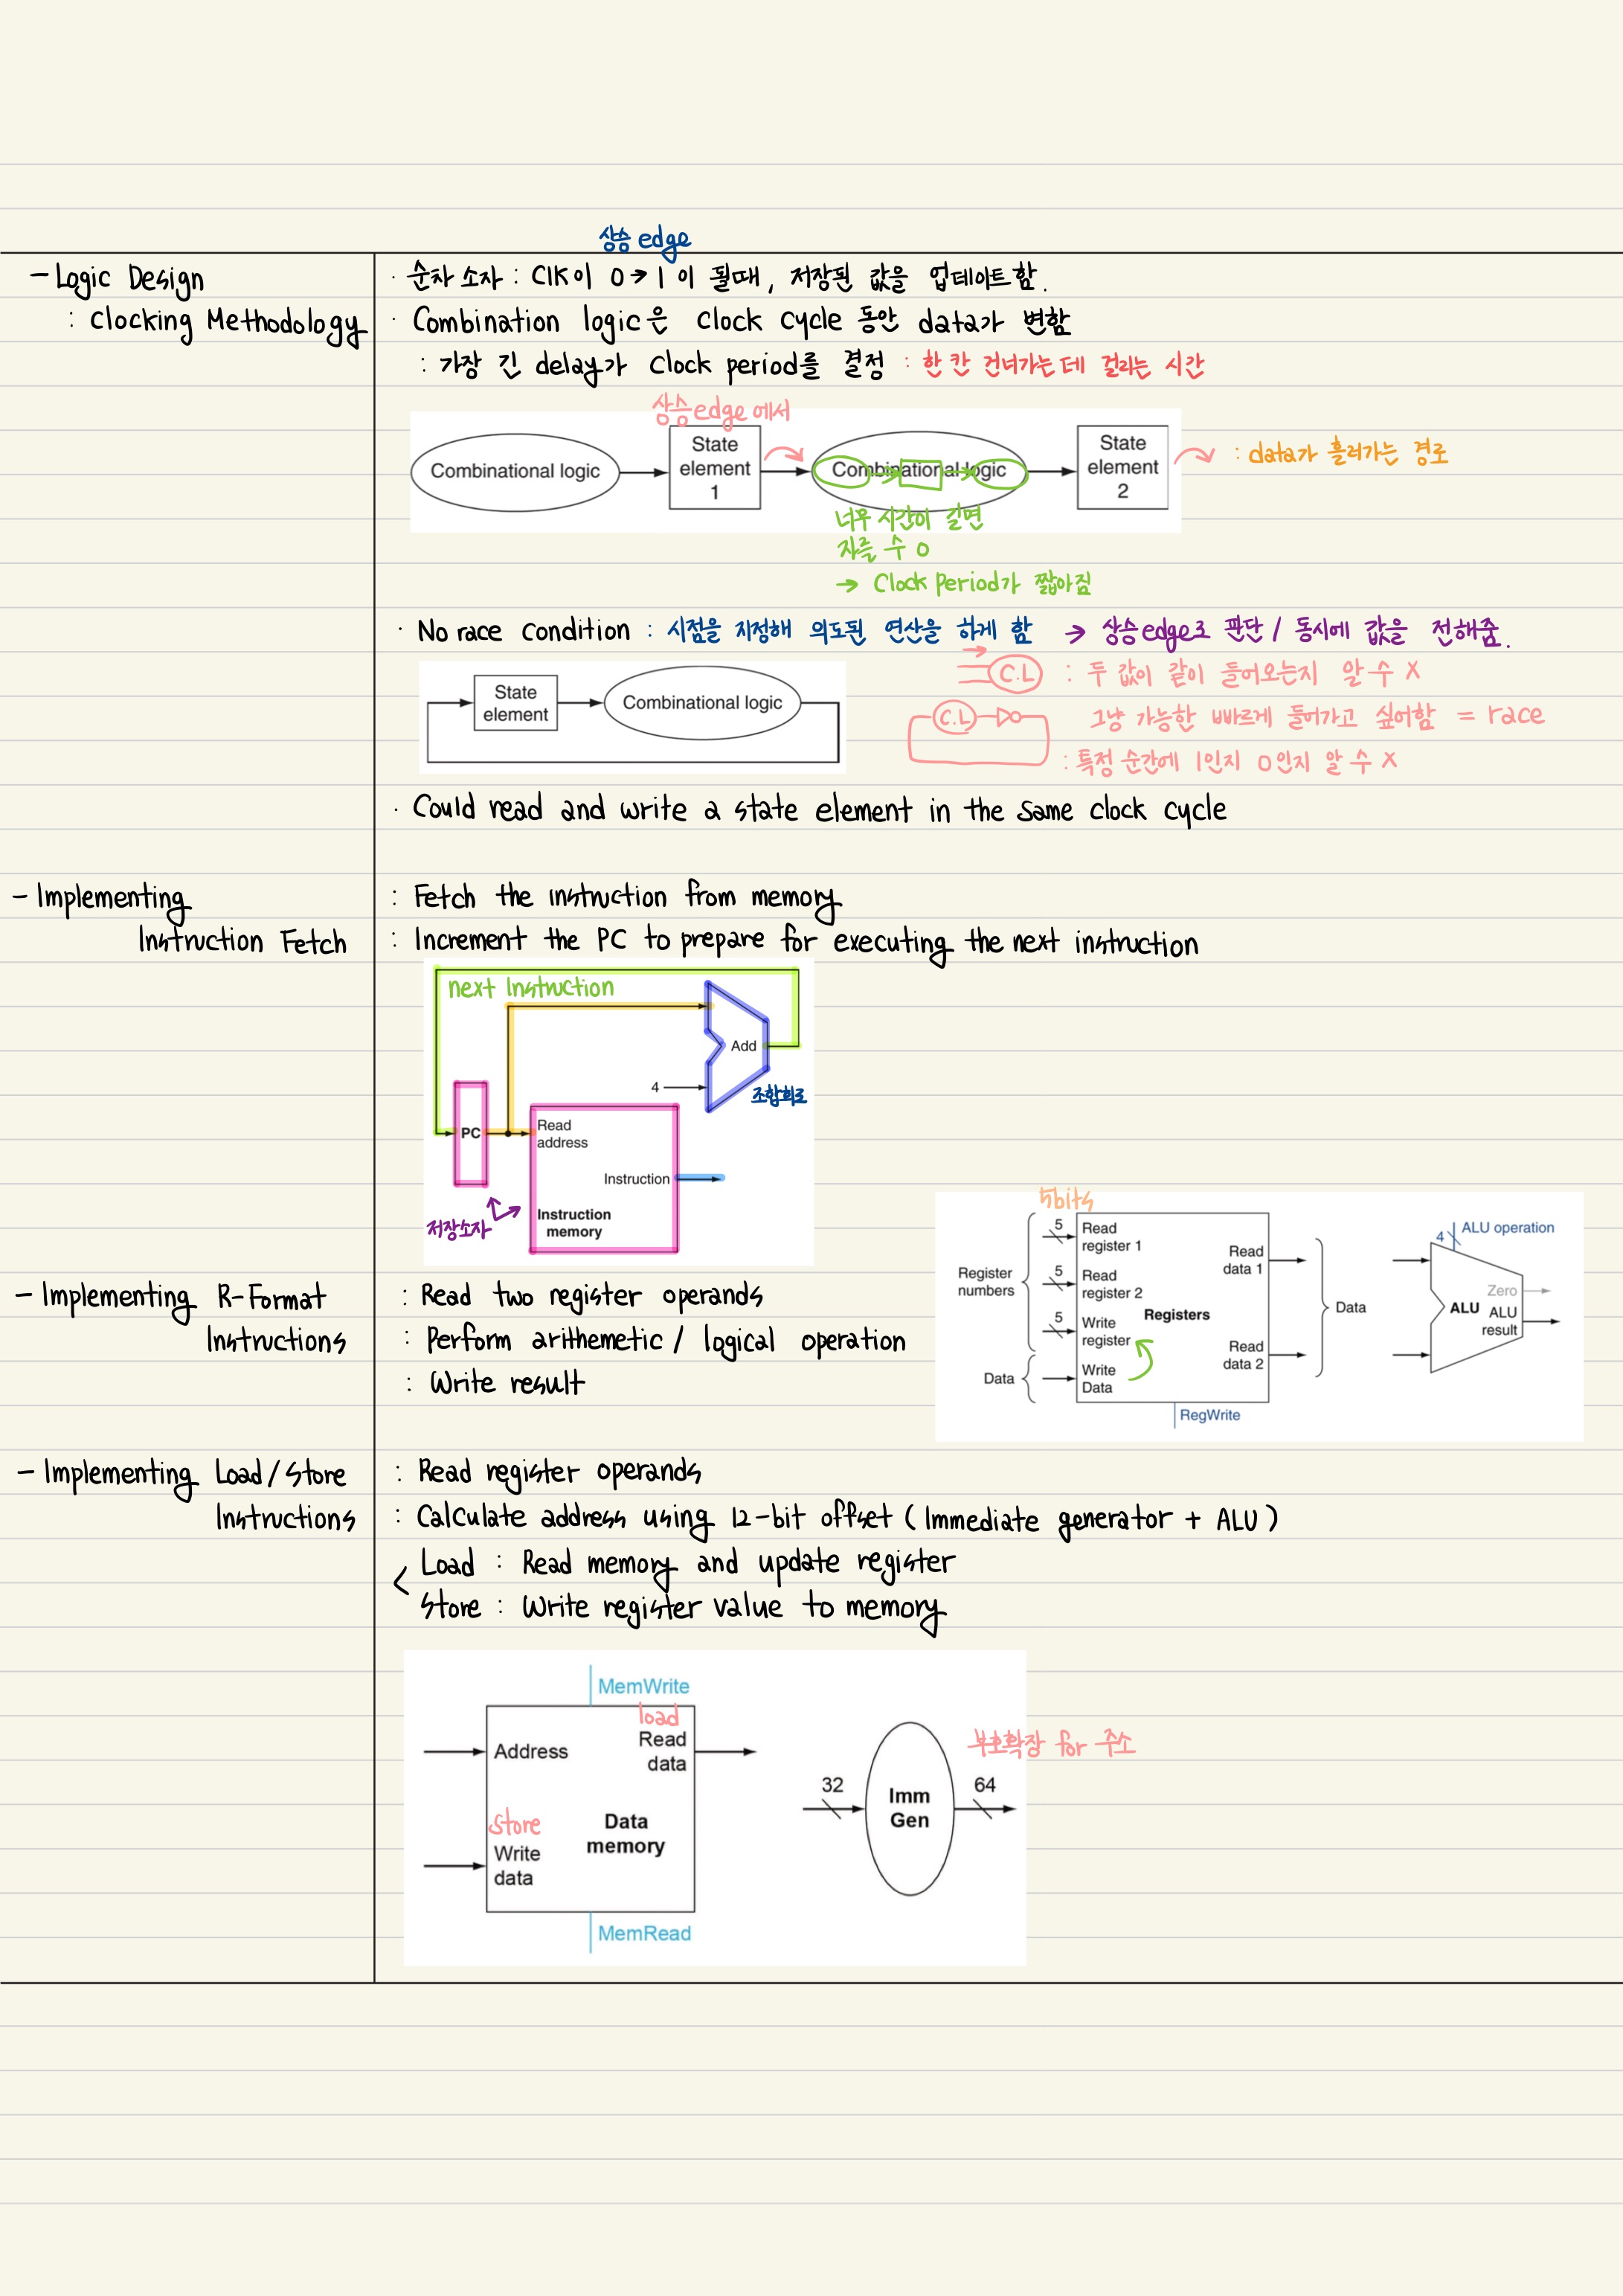 상승 edge
- Logic Design
: Clocking Methodology
· 순차 소자 : Clk이 0→1이 될때, 저장된 값을 업데이트함.
· Combination logic은 clock cycle 동안 data가 변함
: 가장 긴 delay가 Clock period를 결정 : 한 칸 건너가는 데 걸리는 시간
상승 edge 에서
Combinational logic
State element 1
Combinational logic
State element 2
: data가 흘러가는 경로
너무 시간이 길면
자를 수 O
→ Clock Period가 짧아짐
· No race condition : 시점을 지정해 의도된 연산을 하게 함 → 상승edge로 판단 / 동시에 값을 전해줌.
State element
Combinational logic
C.L : 두 값이 같이 들어오는지 알 수 X
C.L 그냥 가능한 빠르게 들어가고 싶어함 = race
: 특정 순간에 1인지 0인지 알 수 X
· Could read and write a state element in the same clock cycle
- Implementing
Instruction Fetch
: Fetch the instruction from memory
: Increment the PC to prepare for executing the next instruction
next Instruction
Add
4
조합회로
PC
Read
address
Instruction
Instruction
memory
저장소자
- Implementing R-Format
Instructions
: Read two register operands
: Perform arithemetic / logical operation
: Write result
5bits
Register
numbers
5
Read
register 1
5
Read
register 2
5
Write
register
Data
Write
Data
Registers
Read
data 1
Read
data 2
RegWrite
Data
4
ALU operation
ALU
Zero
ALU
result
- Implementing Load/Store
Instructions
: Read register operands
: Calculate address using 12-bit offset (Immediate generator + ALU)
< Load : Read memory and update register
Store : Write register value to memory
MemWrite
load
Address
Read
data
store
Write
data
Data
memory
MemRead
32
Imm
Gen
64
부호확장 for 주소